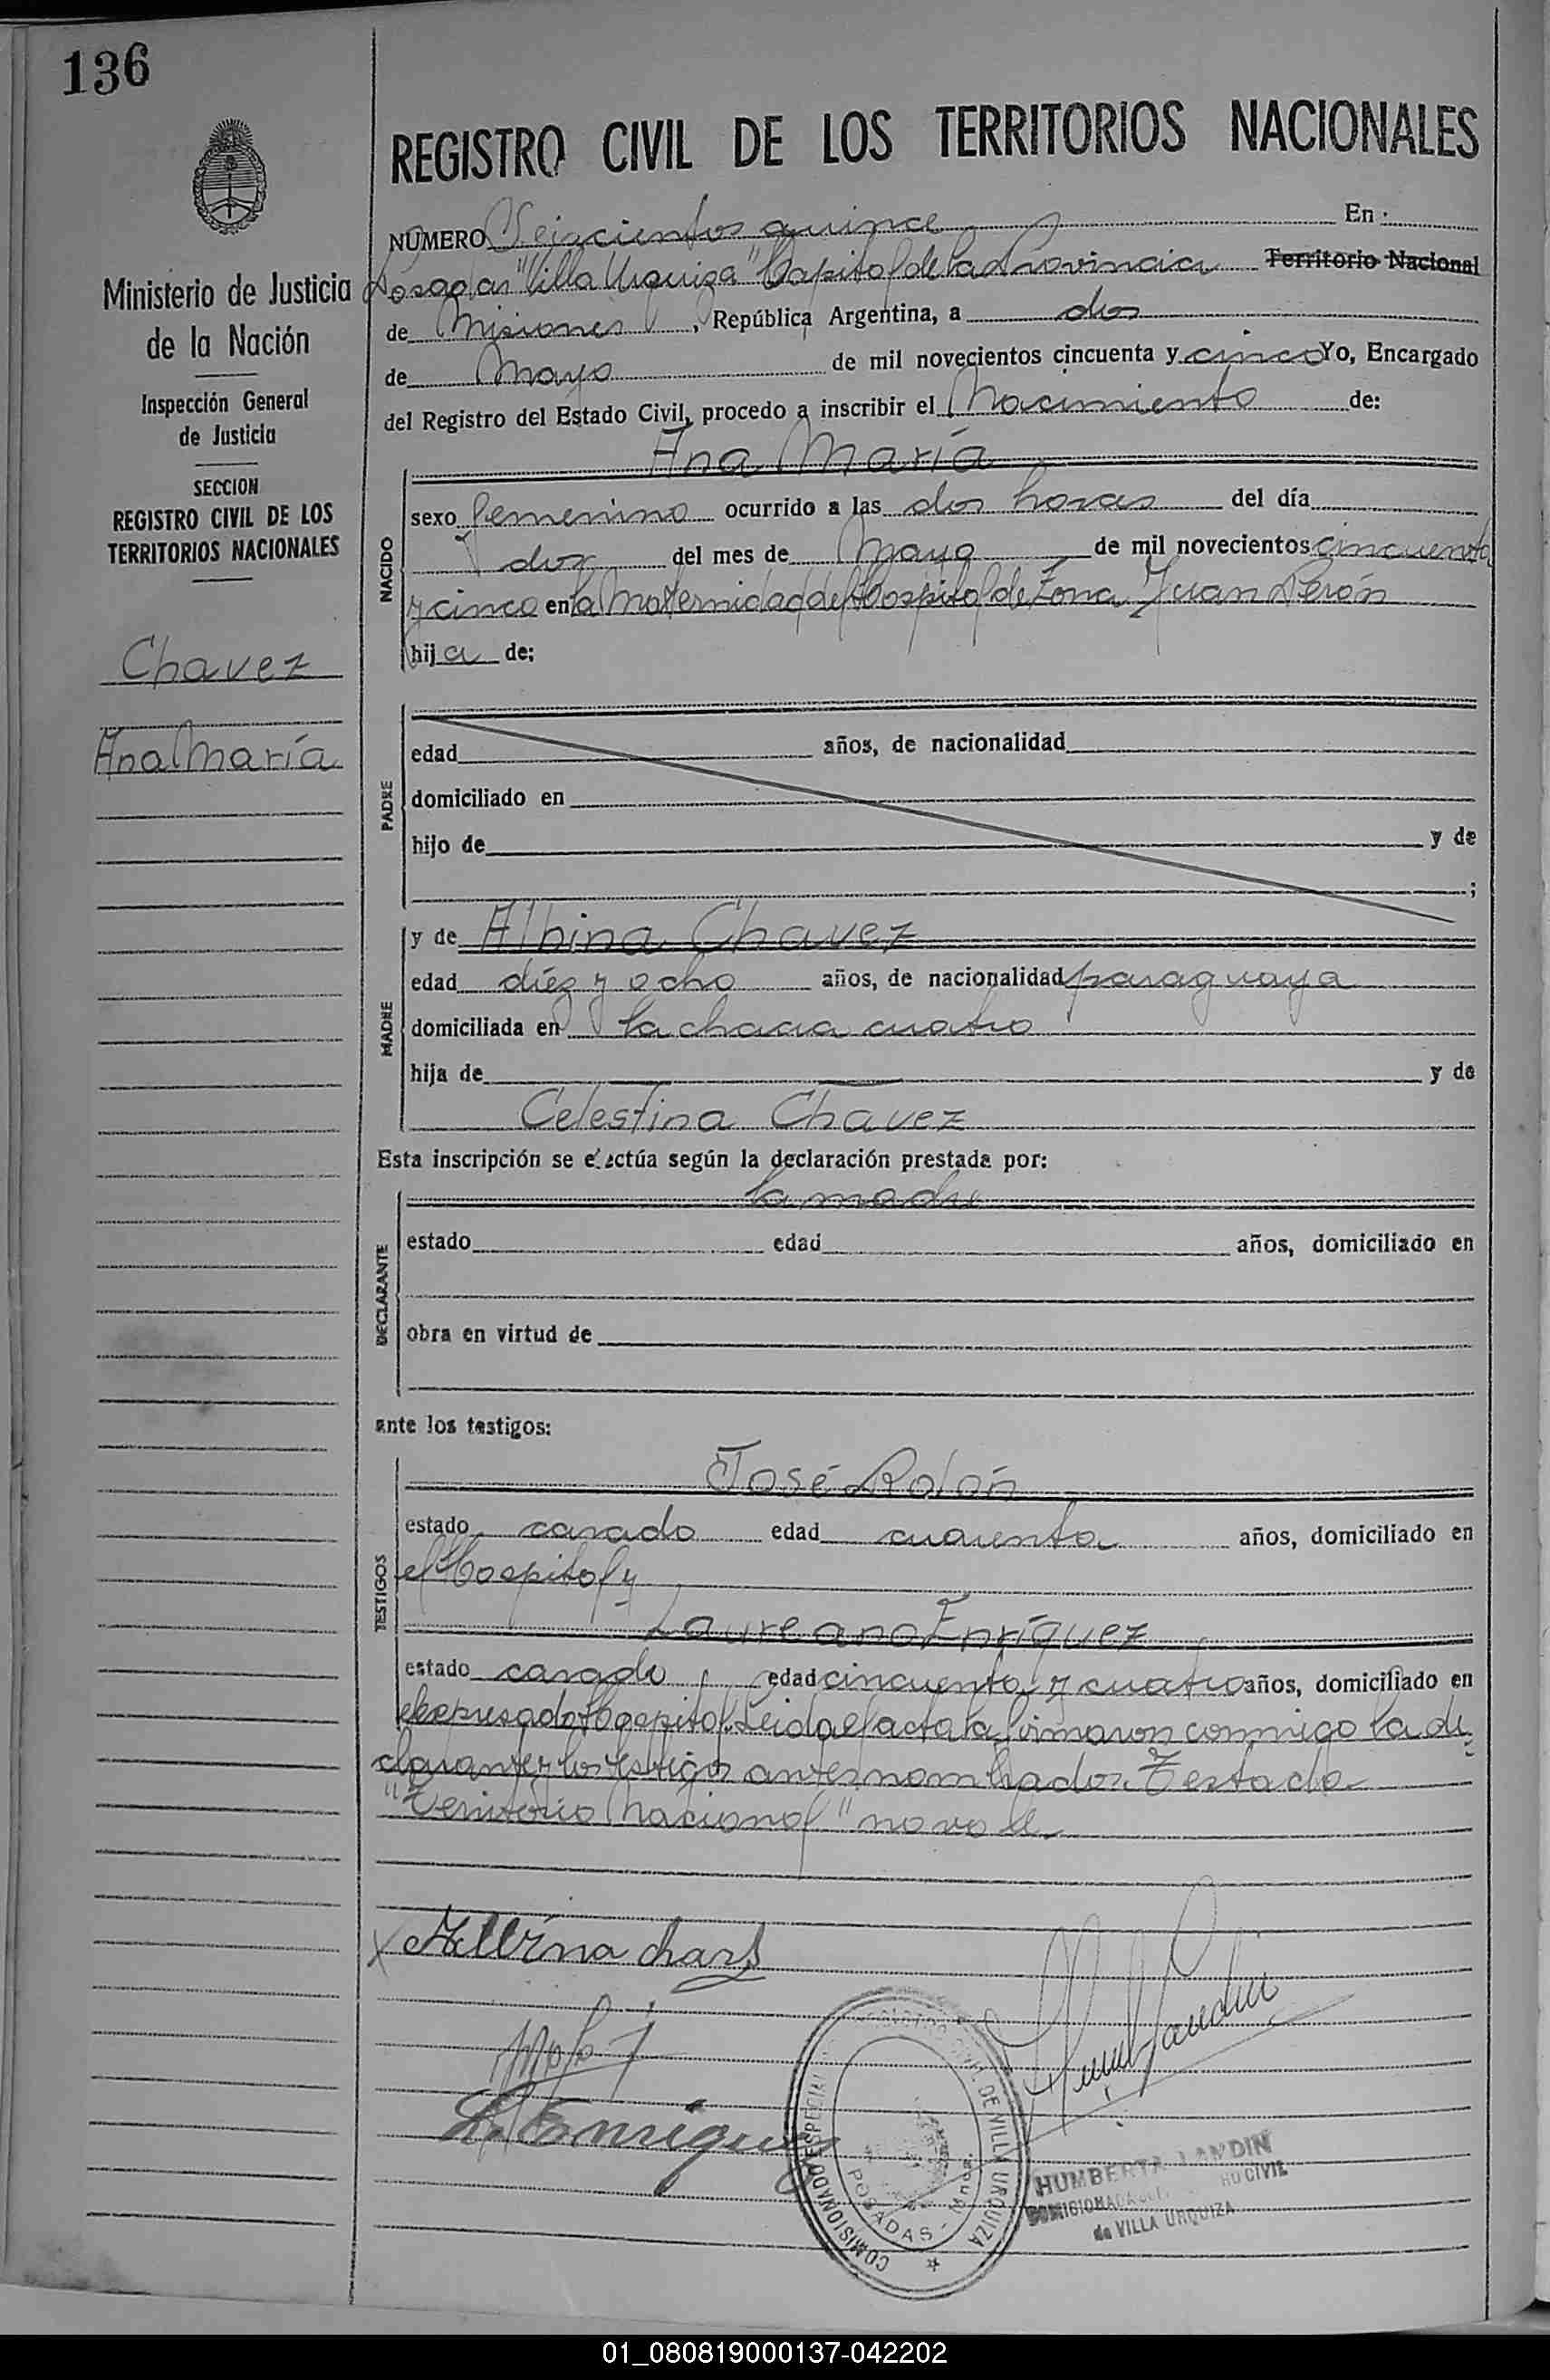 136
REGISTRO CIVIL DE LOS TERRITORIOS NACIONALES
Ministerio de Justicia
de la Nación
Inspección General
de Justicia
SECCION
REGISTRO CIVIL DE LOS
TERRITORIOS NACIONALES
Chavez
Ana María
NUMERO Seiscientos quince En:
Posadas "Villa Urquiza" Capital de la Provincia Territorio Nacional
de Misiones, República Argentina, a dos
de Mayo de mil novecientos cincuenta y cinco Yo, Encargado
del Registro del Estado Civil, procedo a inscribir el Nacimiento de:
Ana María
NACIDO
sexo femenino ocurrido a las dos horas del día
dos del mes de Mayo de mil novecientos cincuenta
y cinco en la Maternidad del Hospital de Zona Juan Perón
hija de:
PADRE
edad años, de nacionalidad
domiciliado en
hijo de y de
;
MADRE
y de Albina Chavez
edad diéz y ocho años, de nacionalidad paraguaya
domiciliada en la chacra cuatro
hija de y de
Celestina Chavez
Esta inscripción se efectúa según la declaración prestada por:
DECLARANTE
la madre
estado edad años, domiciliado en
obra en virtud de
ante los testigos:
TESTIGOS
José Rolón
estado casado edad cuarenta años, domiciliado en
el Hospital y
Laureano Enríquez
estado casado edad cincuenta y cuatro años, domiciliado en
el expresado Hospital. Leida el acta la firmaron conmigo la de
clarante y los testigos antes nombrados. Testado
"Territorio Nacional" no vale
x Albina
L. Enriquez
COMISIONADO ESPECIAL REGISTRO CIVIL DE VILLA URQUIZA
POSADAS -
HUMBERTA LANDIN
COMISIONADA CIVIL
de VILLA URQUIZA
01_080819000137-042202